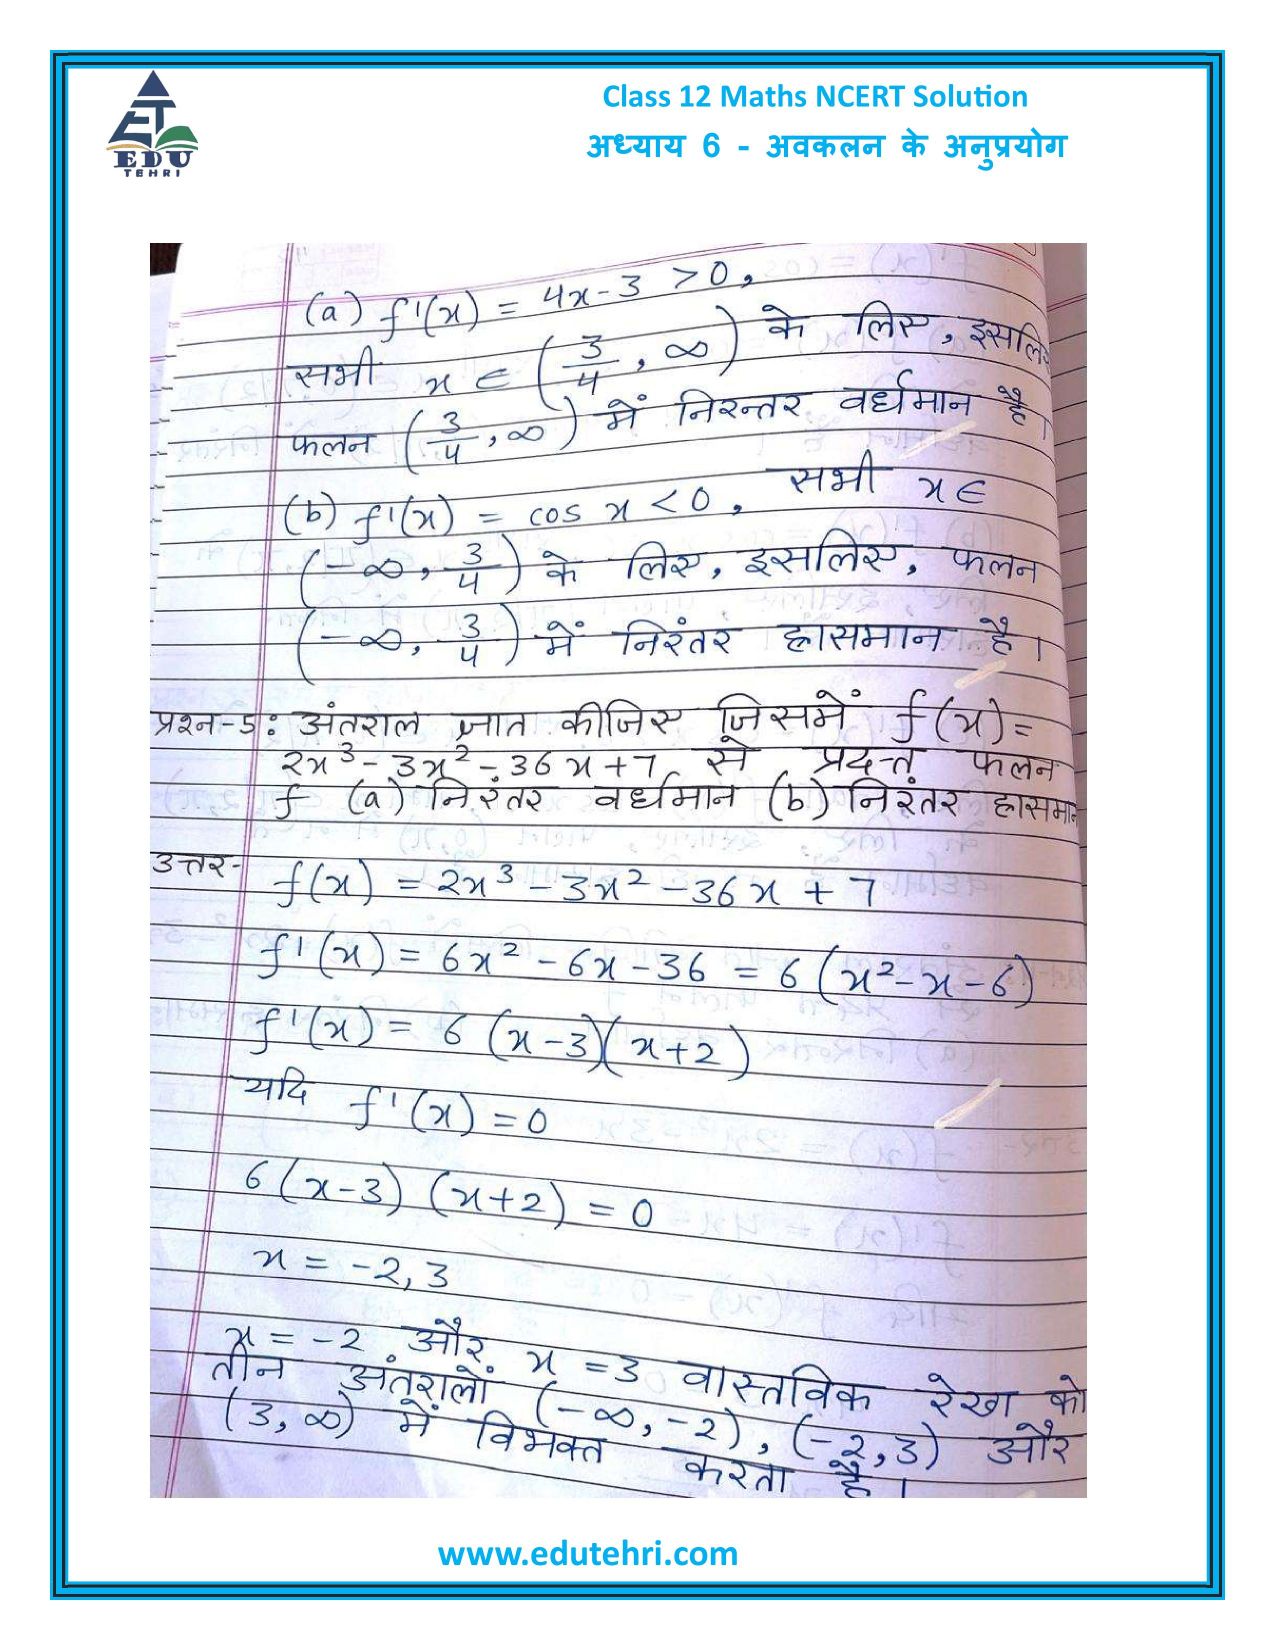 Class 12 Maths NCERT Solution
अध्याय 6 - अवकलन के अनुप्रयोग
ET
EDU
TEHRI
(a) f'(x) = 4x-3 >0,
सभी x ∈ (3/4, ∞) के लिए, इसलिए
फलन (3/4, ∞) में निरन्तर वर्धमान है।
(b) f'(x) = cos x < 0, सभी x ∈
(-∞, 3/4) के लिए, इसलिए, फलन
(-∞, 3/4) में निरंतर ह्रासमान है।
प्रश्न-5: अंतराल ज्ञात कीजिए जिसमें f(x)=
2x³-3x²-36x+7 से प्रदत्त फलन
f (a) निरंतर वर्धमान (b) निरंतर ह्रासमान
उत्तर- f(x) = 2x³-3x²-36x+7
f'(x) = 6x²-6x-36 = 6(x²-x-6)
f'(x) = 6(x-3)(x+2)
यदि f'(x)=0
6(x-3)(x+2)=0
x = -2,3
x = -2 और x =3 वास्तविक रेखा को
तीन अंतरालों (-∞,-2), (-2,3) और
(3,∞) में विभक्त करता है।
www.edutehri.com